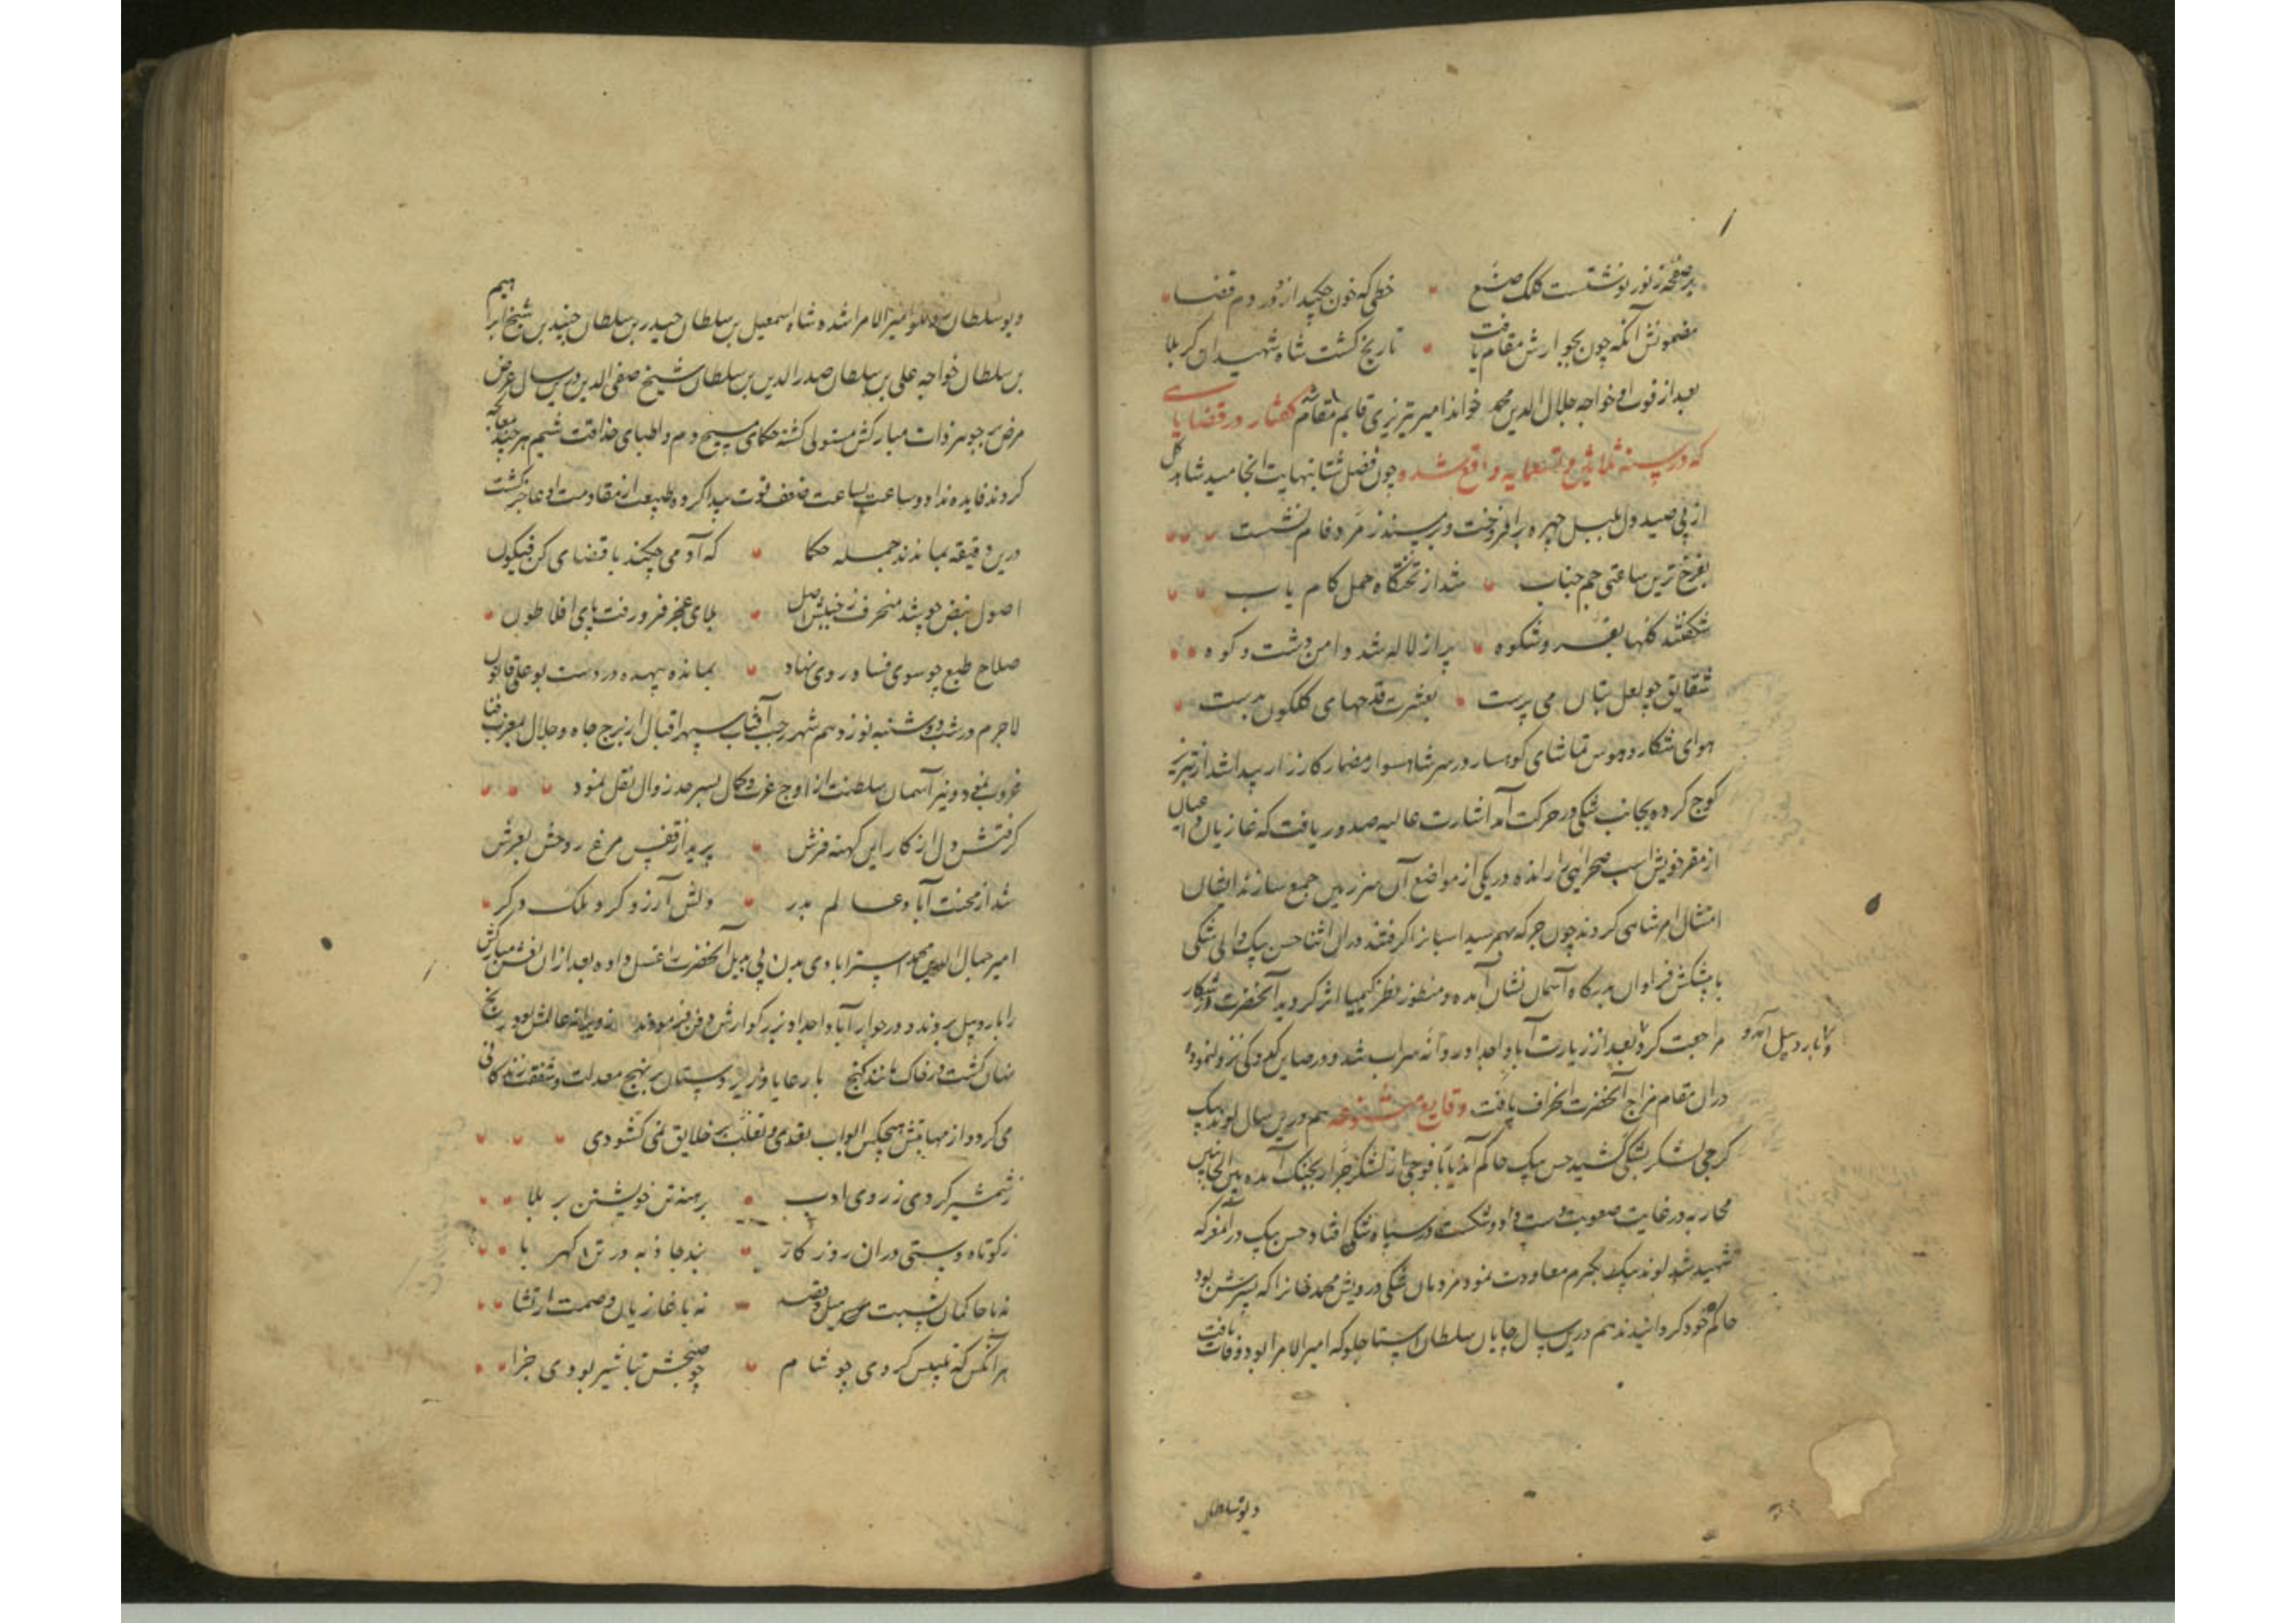 بر صفحه ز نور نوشتست کلک صنع خطی که خون چکید ازو در دم قضا
مضمونش آنکه چون بجوارش مقام یافت تاریخ کشت شاه شهیدان کربلا
بعد از فوت او خواجه جلال الدین محمد خواندامیر تبریزی قایم مقام شد کفتار در قضایایی
که در سنه ثلاثین و تسعمایه واقع شده چون فصل شتا بنهایت انجامید شاه کل
از پی صید دل بلبل چهره برافروخت و بر مسند زمرد فام نشست
بفرخ ترین ساعتی جم جناب شد از تختکاه حمل کام یاب
شکفتند کلها بفر و شکوه پر از لاله شد دامن دشت و کوه
شقایق چو لعل بتان می پرست بعشرت قدحهای کلکون بدست
هوای شکار و هوس تماشای کوهسار در سر شاه سوار مضمار کارزار پیدا شد از تبریز
کوچ کرده بجانب شکی در حرکت آمد اشارت عالیه صدور یافت که غازیان
از مقر خویش اسب صحرایی را رانده در یکی از مواضع آن سرزمین جمع سازند ایشان
امتثال امر شاهی کردند چون جرکه بهم رسید اسبانرا کرفتند در آن اثنا حسن بیک والی شکی
با پیشکش فراوان بدرکاه آسمان نشان آمده و منظور نظر کیمیا اثر کردید آنحضرت از شکار
مراجعت کرده باردبیل آمد و بعد از زیارت آبا و اجداد روانه سراب شد و در نزول نموده
در آن مقام مزاج آنحضرت انحراف یافت وقایع متنوعه هم درین سال لوند بیک
کرجی لشکر بشکی کشید حسن بیک حاکم آن دیار با فوجی از لشکر جرار بجنک آمده بین الجانبین
محاربه در غایت صعوبت دست داد و شکست در سپاه شکی افتاد و حسن بیک در آن معرکه
شهید شد لوند بیک بکرم معاودت نمود مردمان شکی درویش محمد خانرا که پسرش بود
حاکم خود کردانیدند هم درین سال چایان سلطان استاجلو که امیر الامرا بود وفات یافت
دیو سلطان
دیو سلطان روملو امیر الامرا شد شاه اسمعیل بن سلطان حیدر بن سلطان جنید بن شیخ ابراهیم
بن سلطان خواجه علی بن سلطان صدر الدین بن سلطان شیخ صفی الدین درین سال عرض
مرض بر جوهر ذات مبارکش مستولی کشته حکمای مسیح دم و اطبای حذاقت شیم هر چند معالجه
کردند فایده نداد و ساعت بساعت ضعف قوت پیدا کرده طبیعت از مقاومت او عاجز کشت
درین دقیقه بماندند جمله حکما که آدمی چکند با قضای کن فیکون
اصول نبض چو شد منحرف ز جنبش اصل بلای عجز فرو رفت پای افلاطون
صلاح طبع چو سوی فساد روی نهاد بمانده بیهده در دست بوعلی قانون
لاجرم در شب دوشنبه نوزدهم شهر رجب آفتاب سپهر اقبال از برج جاه و جلال بمغرب فنا
غروب نمود و نیر آسمان سلطنت از اوج عزت و کمال بسرحد زوال نقل نمود
کرفتش دل از کار این کهنه فرش پرید از قفس مرغ روحش بعرش
شد از محنت آباد عالم بدر دلش آرزو کرد ملک دکر
امیر جمال الدین محمد استرابادی بدن بی بدیل آنحضرت را غسل داده بعد از آن نعش مبارکش
را باردبیل بردند و در جوار آبا و اجداد بزرکوارش دفن فرمودند ز ویرانه عالمش بود رنج
نهان کشت در خاک مانند کنج با رعایا و زیردستان بر نهج معدلت و شفقت زندکانی
می کرد و از مهابتش هیچکس ابواب تعدی و تغلب بر خلایق نمی کشودی
ز شمشیر کردی ز روی ادب برهنه تن خویشتن بر بلا
ز کوتاه دستی در آن روزکار نبد جاذبه در تن کهربا
نه با حاکمان نسبت میل و قصد نه با غازیان وصمت ارتشا
هر آنکس که تلبیس کردی چو شام چو صبحش تباشیر بودی جزا